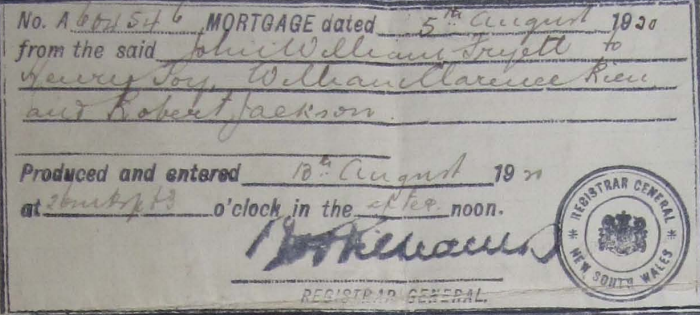 No. A 604546 MORTGAGE dated 5th August 1920
from the said John William Tryett to
Henry Toy, William Clarence
and Robert Jackson.
Produced and entered 13th August 1920
at o'clock in the after noon.
REGISTRAR GENERAL.
REGISTRAR GENERAL
NEW SOUTH WALES